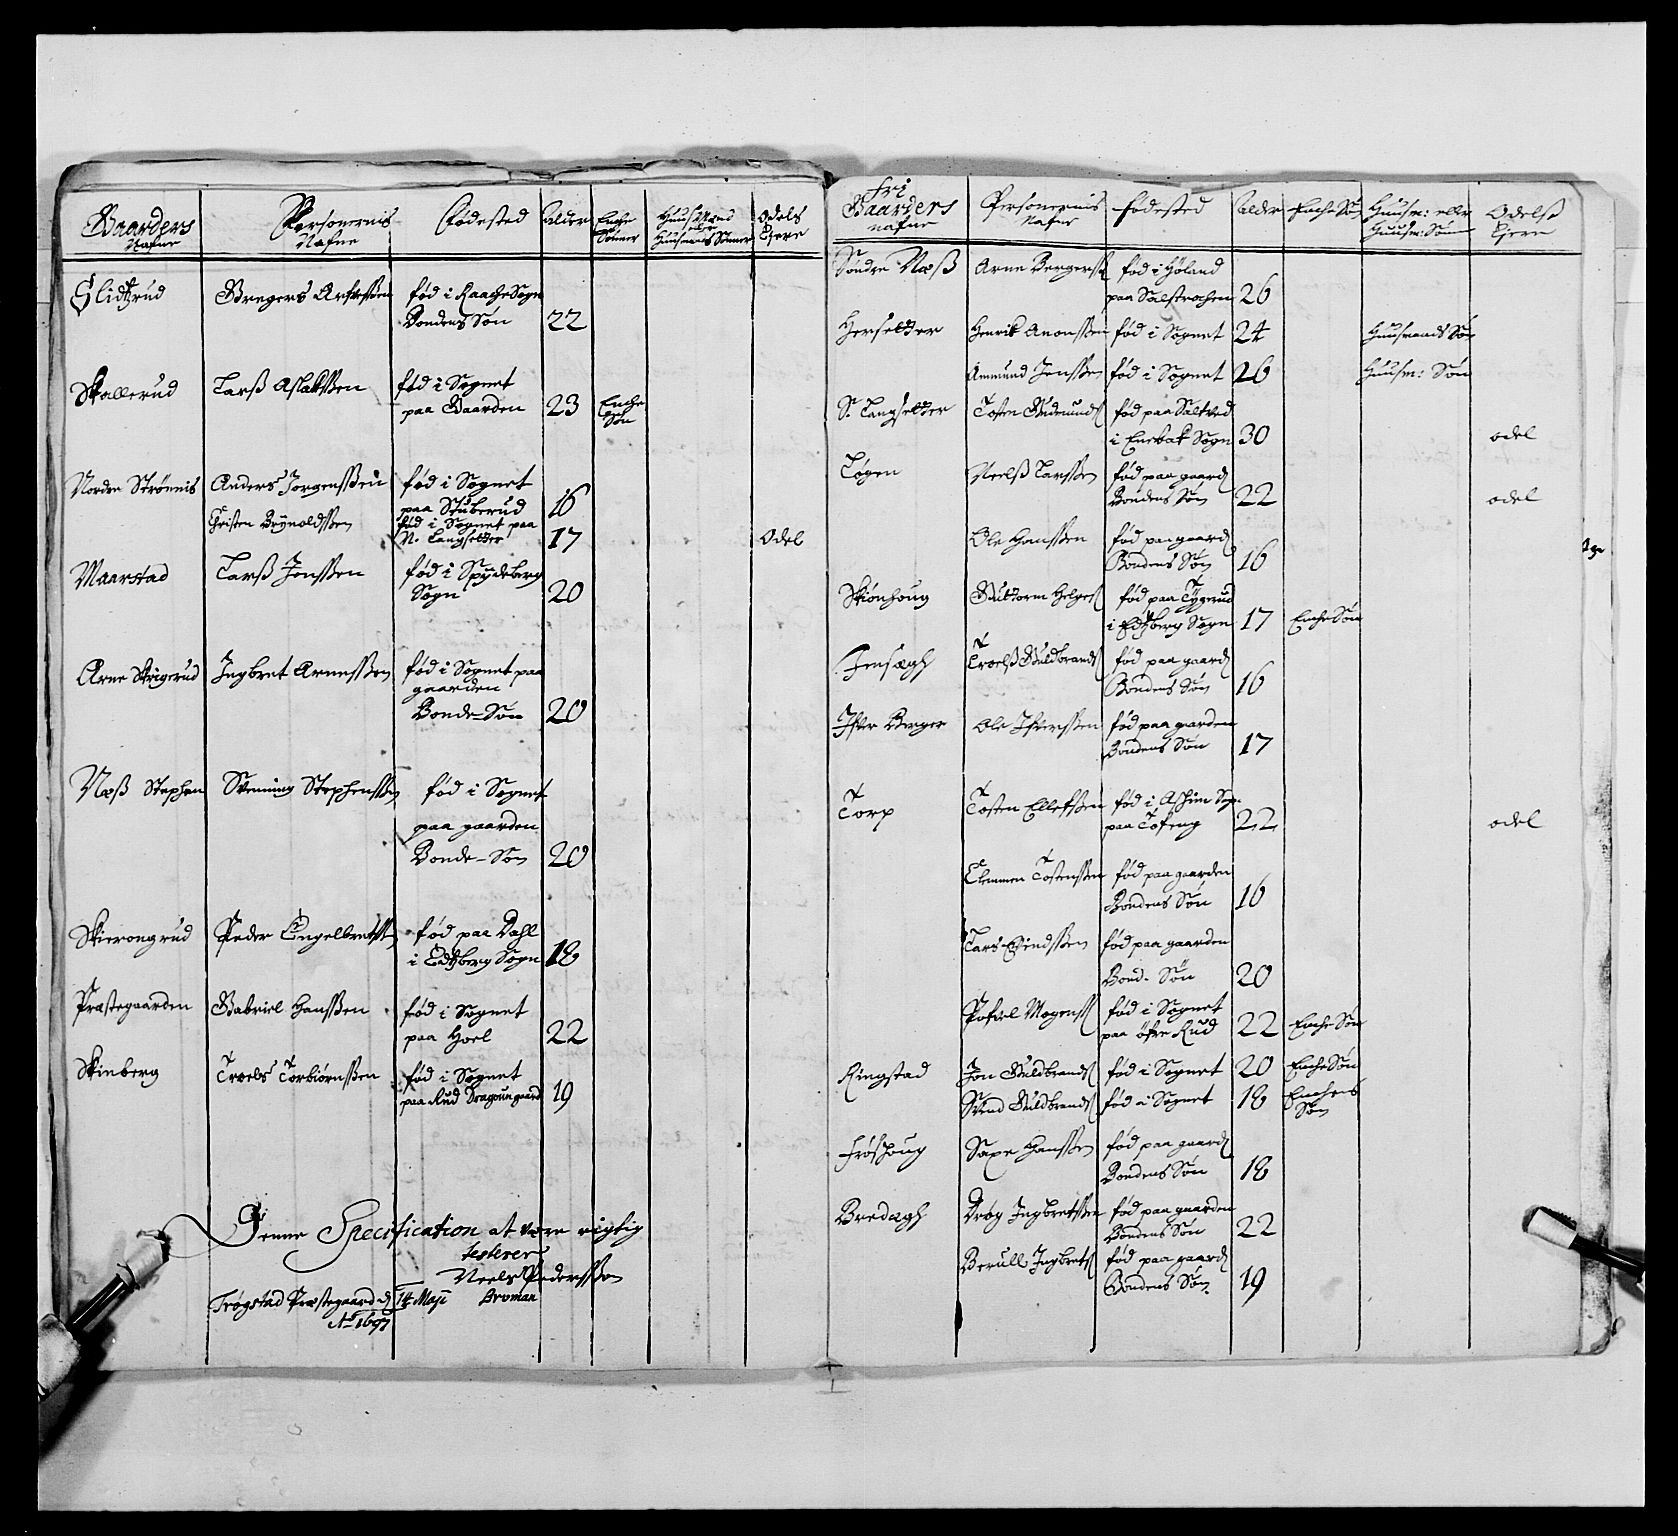 Gaarders Nafne | Personernis Nafne | Fødested | Alder | Enche Sønner | Huus Mænd eller Huusmends Sønner | Odels Eyere
Slidtzrud | Gregers Arfvessen | fød i Raache Sogn
Bondens Søn | 22
Skallerud | Larß Aslakssen | fød i Sognet
paa Gaarden | 23 | Enche Søn
Nordre Strønnis | Anders Jørgenssen | fød i Sognet
paa Stuberud | 16
Christen Brynoldssen | fød i Sognet paa
N. Langsetter | 17 | Odel
Maarstad | Larß Jenssen | fød i Spydeberg
Sogn | 20
Arne Skrigerud | Ingbret Arnessen | fød i Sognet paa
gaarden
Bonde-Søn | 20
Næß Stephen | Svenning Stephenssen | fød i Sognet
paa gaarden
Bonde-Søn | 20
Skierongrud | Peder Engelbretss | fød paa Dahl
i Edtzberg Sogn | 18
Præstegaarden | Gabriel Hanssen | fød i Sognet
paa Hoel | 22
Skinberg | Troels Torbiørnssen | fød i Sognet
paa Rud Dragoungaard | 19
Denne Specification at være rigtig
testerer
Neels Pederssøn
Trøgstad Præstegaard d. 14 Maji Broman
Ao 1697
fri
Gaarders nafne | Personernis Nafne | fødested | Alder | Enche Søn | Huusm: eller Huusm: Søn | Odelß Eyere
Søndre Næß | Arne Bergerss | fød i Høland
paa | 26
Hersetter | Henrik Anonssen | fød i Sognet | 24 | Huusmands Søn
Ammund Jenssen | fød i Sognet | 26 | Huusm: Søn
S. Langsetter | Tosten Gudmunds | fød paa Saltved
i Enebak Sogn | 30 | odel
Løgen | Neelß Larssen | fød paa gaard
Bondens Søn | 22 | odel
Ole Hanssen | fød paa gaard
Bondens Søn | 16
Skiønhoug | Guttorm Helges | fød paa Tygerud
i Edtzberg Sogn | 17 | Enche Søn
Jensægh | Troelß Guldbrands | fød paa gaard
Bondens Søn | 16
Ifver Berger | Ole Ifverssen | fød paa gaarden
Bondens Søn | 17
Torp | Tosten Ellefssen | fød i Aschim Sogn
paa Tofeng | 22 | odel
Clemmen Tostenssen | fød paa gaarden
Bondens Søn | 16
Lars Evindssen | fød paa gaarden
Bond. Søn | 20
Pofvel Mogenss | fød i Sognet
paa öfre Rud | 22 | Enche Søn
Ringstad | Jon Guldbrands | fød i Sognet | 20 | Enche Søn
Svend Guldbrands | fød i Sognet | 18 | Enches Søn
Frøshoug | Saxe Hanssen | fød paa gaard
Bondens Søn | 18
Bredagh | Drøg Ingbretssen | fød paa gaarden
Bondens Søn | 22
Berull Ingbrets | fød paa gaard
Bondens Søn. | 19